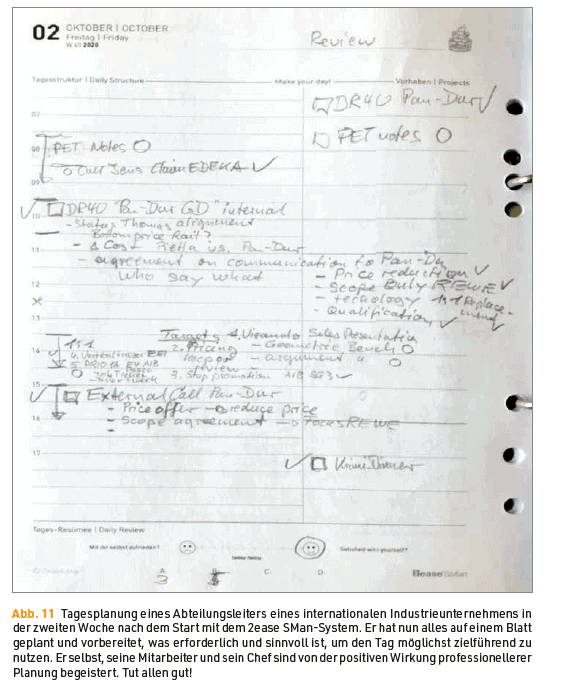 02 OKTOBER | OCTOBER
Freitag | Friday
W 40 2020
Review
Tagesstruktur | Daily Structure
Make your day!
Vorhaben | Projects
DR40 Pan-Dur
PET notes
07
08 PET Notes
Call Jens Claim EDEKA
09
10 DR40 "Pan-Dur GD" internal
- Status Thomas alignment
Bottom price Kail?
11 - Δ Cost Pietta vs. Pan-Dur
- agreement on communication to Pan-Du
12 Who say what
- Price reduction
- Scope Only REWE
- tecnology 1:1 Replacement
- Qualification
13
14 1:1
Targets 1. Visando Sales Presentation
2. Pricing - Geometric Bench
Report - argument
review
3. Stop promotion
15 External Call Pan-Dur
- Price offer → reduce price
16 - Scope agreement → focus REWE
17
Krimi Dinner
Tages-Resümee | Daily Review
Mit dir selbst zufrieden?
Satisfied with yourself?
A. B. C. D.
2ease SMan
Abb. 11 Tagesplanung eines Abteilungsleiters eines internationalen Industrieunternehmens in
der zweiten Woche nach dem Start mit dem 2ease SMan-System. Er hat nun alles auf einem Blatt
geplant und vorbereitet, was erforderlich und sinnvoll ist, um den Tag möglichst zielführend zu
nutzen. Er selbst, seine Mitarbeiter und sein Chef sind von der positiven Wirkung professionellerer
Planung begeistert. Tut allen gut!